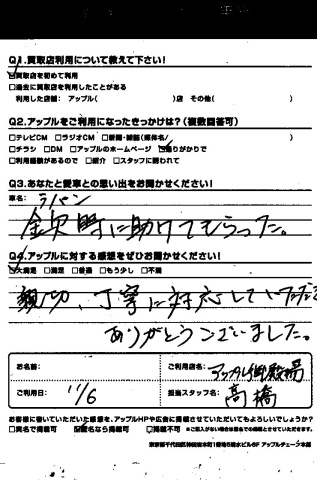 Q1.買取店利用について教えて下さい!
☑買取店を初めて利用
□過去に買取店を利用したことがある
利用した店舗: アップル( )店 その他( )
Q2.アップルをご利用になったきっかけは?(複数回答可)
□テレビCM □ラジオCM □新聞・雑誌(媒体名/ )
□チラシ □DM □アップルのホームページ ☑通りがかりで
□利用経験があるので □紹介 □スタッフに誘われて
Q3.あなたと愛車との想い出をお聞かせください!
車名: ラパン
金欠時に助けてもらった。
Q4.アップルに対する感想をぜひお聞かせください!
☑大満足 □満足 □普通 □もう少し □不満
親切、丁寧に対応していただき
ありがとうございました。
お名前:
ご利用店名: アップル御殿場
ご利用日: 11/6
担当スタッフ名: 高橋
お客様に書いていただいた感想を、アップルHPや広告に掲載させていただいてもよろしいでしょうか?
□実名で掲載可 ☑匿名なら掲載可 □掲載不可 ※ご記入がない場合は匿名での掲載とさせていただきます。